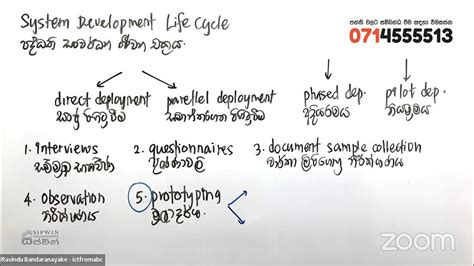 System Development Life Cycle
පද්ධති සංවර්ධන ජීවන චක්‍රය.
පන්ති වලට සම්බන්ධ වීම සඳහා විමසන්න
0714555513
direct deployment
parellel deployment
phased dep.
pilot dep.
සෘජු පිහිටුවීම
සමාන්තරගත පිහිටුවීම
1. interviews
2. questionnaires
3. document sample collection
සම්මුඛ සාකච්ඡා
ප්‍රශ්නාවලි
4. observation
5. prototyping
නිරීක්ෂණය
SIPWIN
සිප්වින්
zoom
Ravindu Bandaranayake - ictfromabc